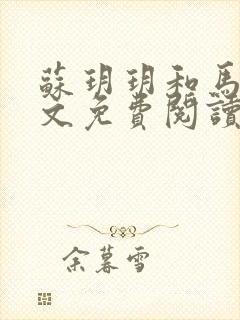 蘇玥玥和馬
文免費閱讀
余暮雪